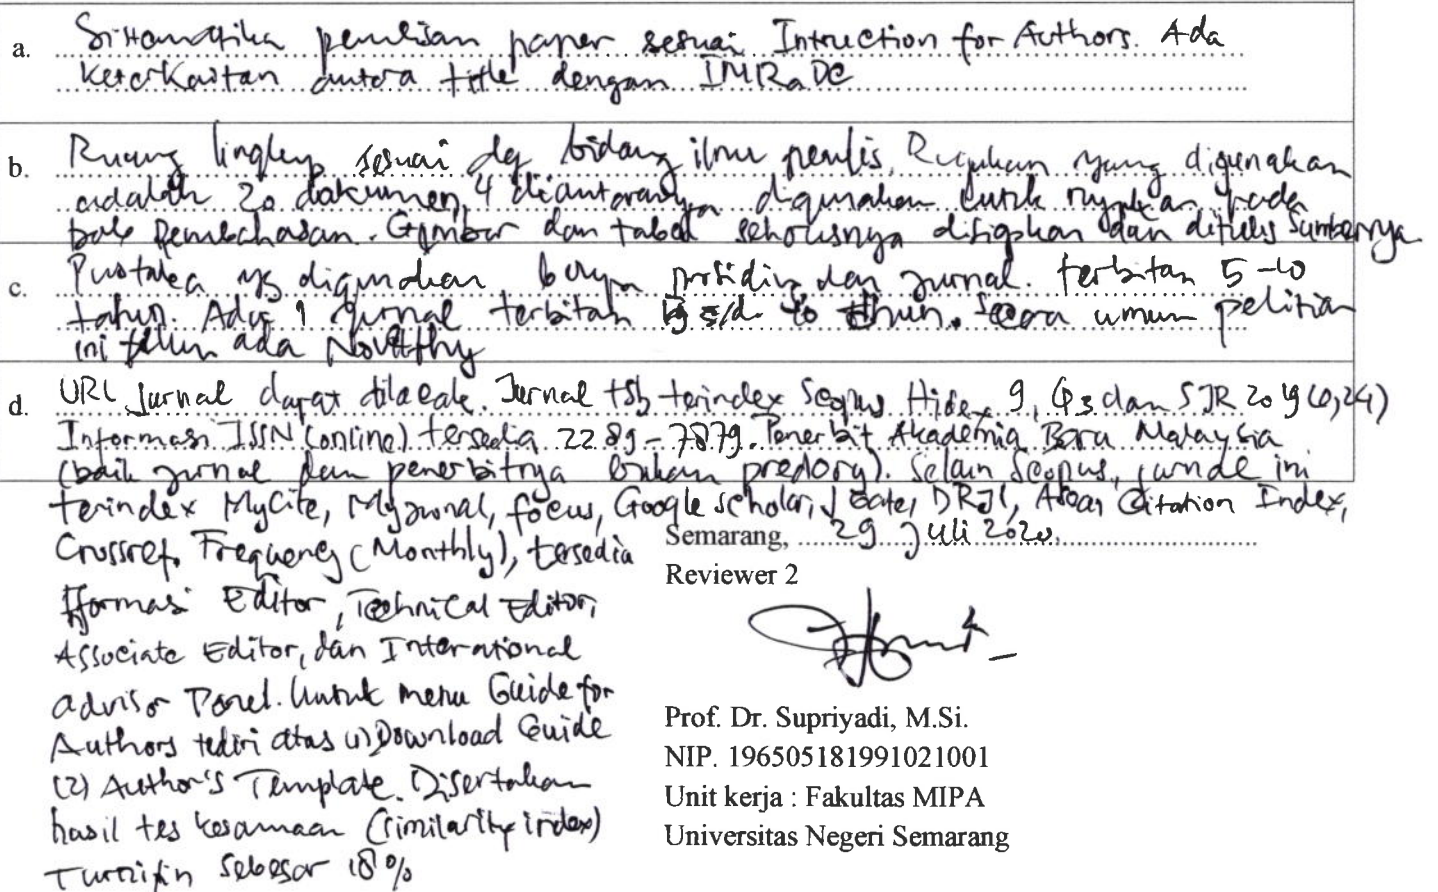 a. Sistematika penulisan paper sesuai Intruction for Authors. Ada
keterkaitan antara title dengan IMRaDC
b. Ruang lingkup sesuai dg bidang ilmu penulis. Rujukan yang digunakan
adalah 20 dokumen, 4 diantaranya digunakan untuk rujukan pada
bab pembahasan. Gambar dan tabel seharusnya disiapkan dan ditulis sumbernya
c. Pustaka yg digunakan berupa prosiding dan jurnal. terbitan 5-10
tahun. Ada 1 jurnal terbitan s/d 10 tahun. Secara umum
ini ada
d. URL jurnal dapat dilacak. Jurnal tsb terindex Scopus Hidex 9, Q3 dan SJR 2019 (0,24)
Informasi ISSN (online) tersedia 2289-7879. Penerbit Akademia Baru Malaysia
(baik jurnal dan penerbitnya bukan predory). Selain Scopus, jurnal ini
terindex MyCite, Myjurnal, focus, Google scholar, DRJI, Asean Citation Index,
Crossref. Frequency (Monthly), tersedia
Iformasi Editor, Technical Editor,
Associate Editor, dan International
advisor Panel. Untuk menu Guide for
Authors tediri atas (1) Download Guide
(2) Author's Template. Disertakan
hasil tes kesamaan (similarity index)
Turnitin sebesar 18%
Semarang, 29 Juli 2020
Reviewer 2
Prof. Dr. Supriyadi, M.Si.
NIP. 196505181991021001
Unit kerja : Fakultas MIPA
Universitas Negeri Semarang